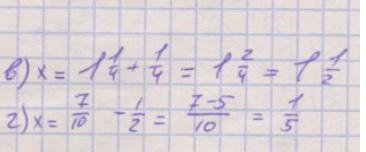 в) x = 1 1/4 + 1/4 = 1 2/4 = 1 1/2
г) x = 7/10 - 1/2 = (7-5)/10 = 1/5